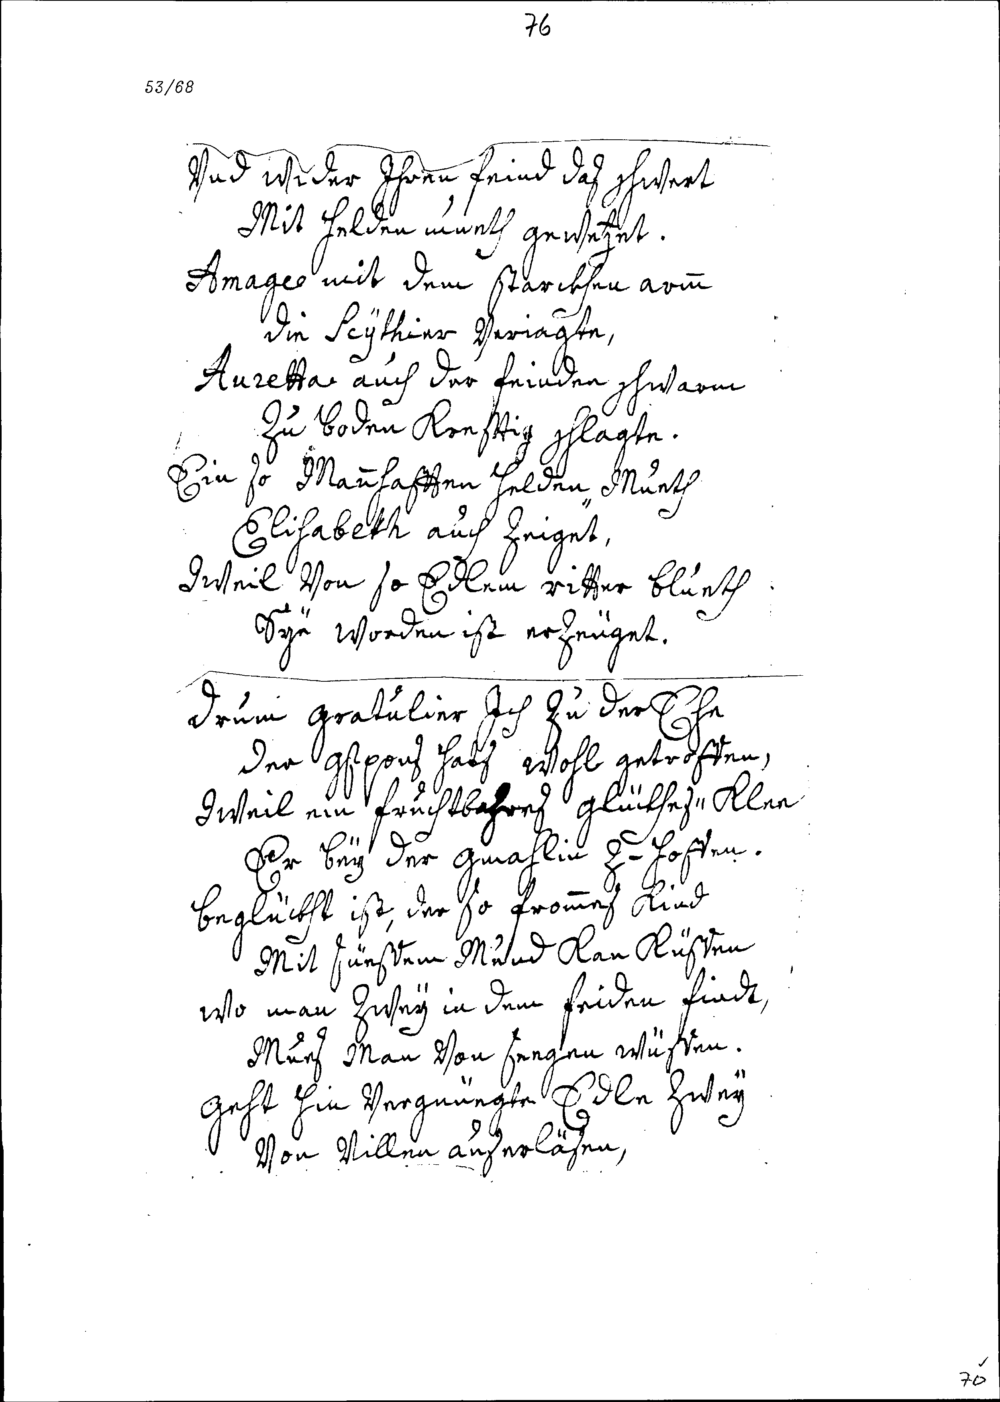 76
53/68
Vnd wider Ihren feind daß schwert
Mit helden mueth gewetzet.
Amages mit dem starckhen arm̄
die Scÿthier Veriagte,
Auretta auch der feinden schwarm
Zu boden Krefftig schlagte.
Ein so Man̄hafften helden Mueth
Elisabeth auch Zeiget,
Jweil Von so Edlem ritter blueth
Syë worden ist erZeüget.
drum gratulier Ich Zu der Ehe
der gspons hats wohl getroffen,
Jweil ein fruchtbahres glückhes" Klee
Er beÿ der gmahlin Z= hoffen.
beglückht ist, der so from̄es Kind
Mit süessem Mund Kan Küssen
wo man Zweÿ in dem friden findt,
Mues Man Von seegen wüssen.
geht hin Vergnüegte Edle Zweÿ
Von Villen außerläsen,
70